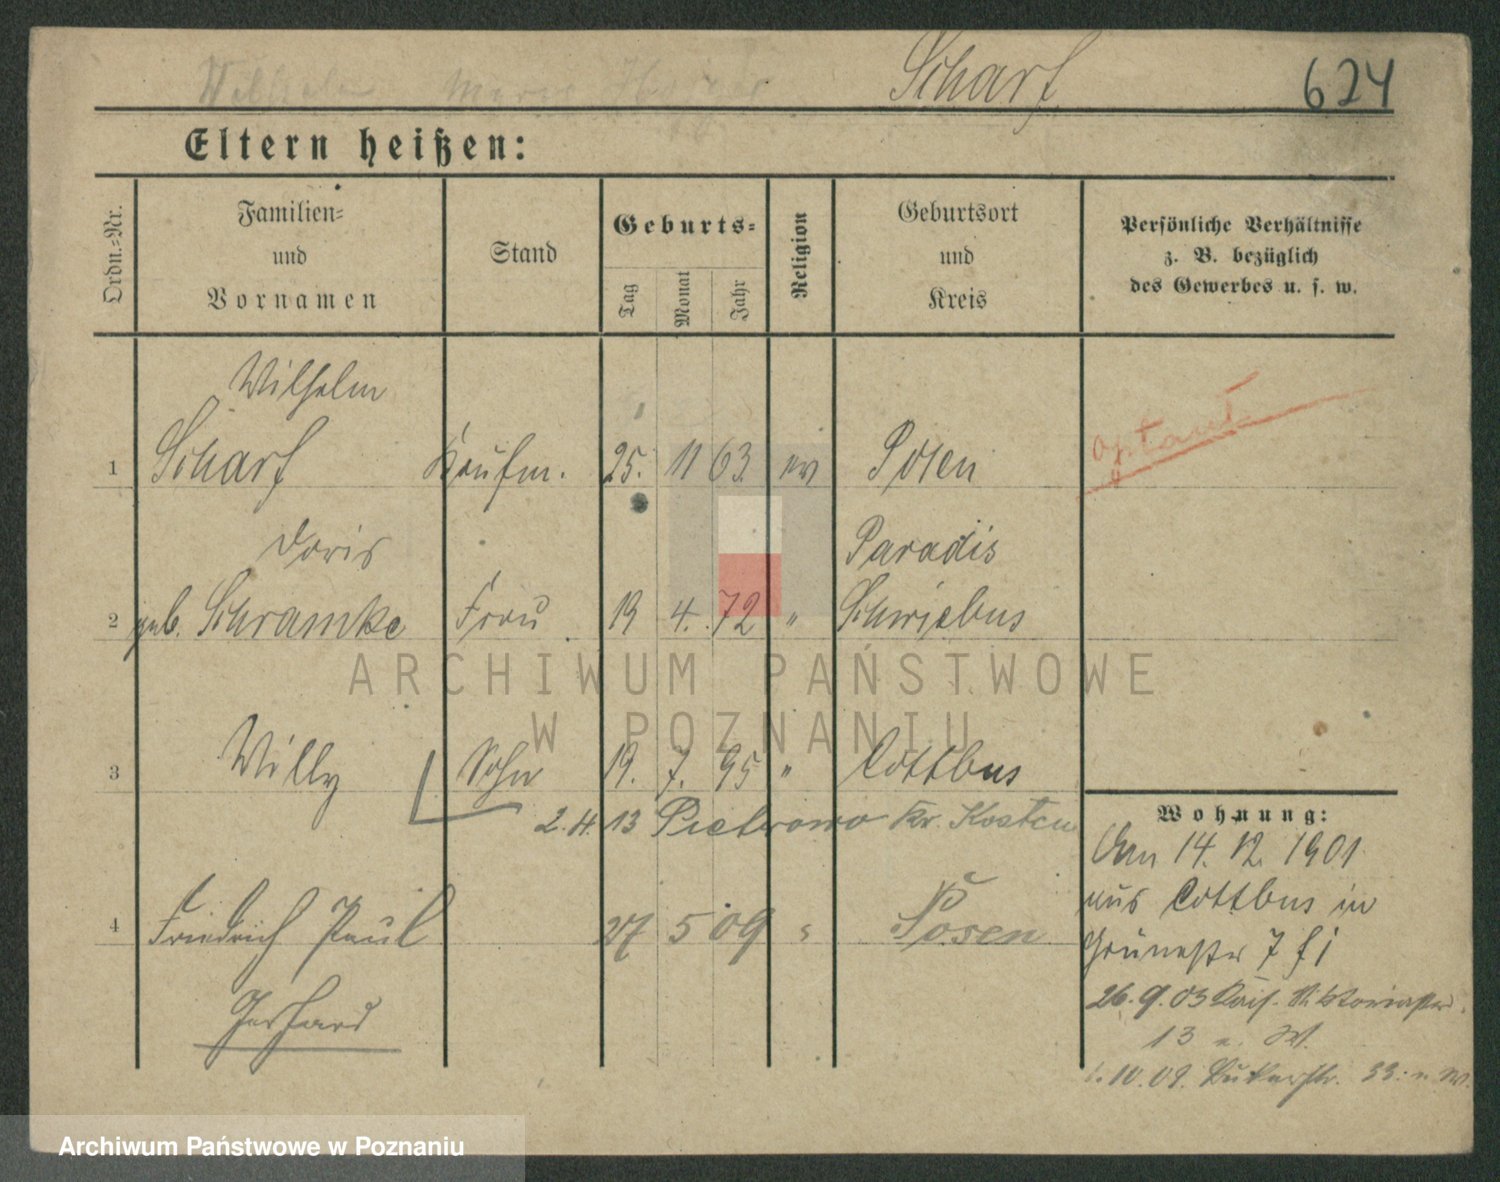 Wilhelm Scharf 624
Eltern heißen:
Ordn.=Nr.
Familien=
und
Vornamen
Stand
Geburts=
Tag Monat Jahr
Religion
Geburtsort
und
Kreis
Persönliche Verhältnisse
z. B. bezüglich
des Gewerbes u. s. w.
Wilhelm
1 Scharf Kaufm. 25. 11 63 ev Posen Optant
Doris Paradis
2 geb. Schramke Frau 19 4. 72 " Schwiebus
3 Willy Sohn 19. 7. 95 " Cottbus
2. 4. 13 Pietrowo Kr. Kosten
4 Friedrich Paul 27 5 09 " Posen
Gerhard
Wohnung:
Am 14. 12. 1901
aus Cottbus in
7
26. 9. 03 Kais. Viktoriastr.
13 u. W.
10. 09. 33. u. W.
ARCHIWUM PAŃSTWOWE
W POZNANIU
Archiwum Państwowe w Poznaniu